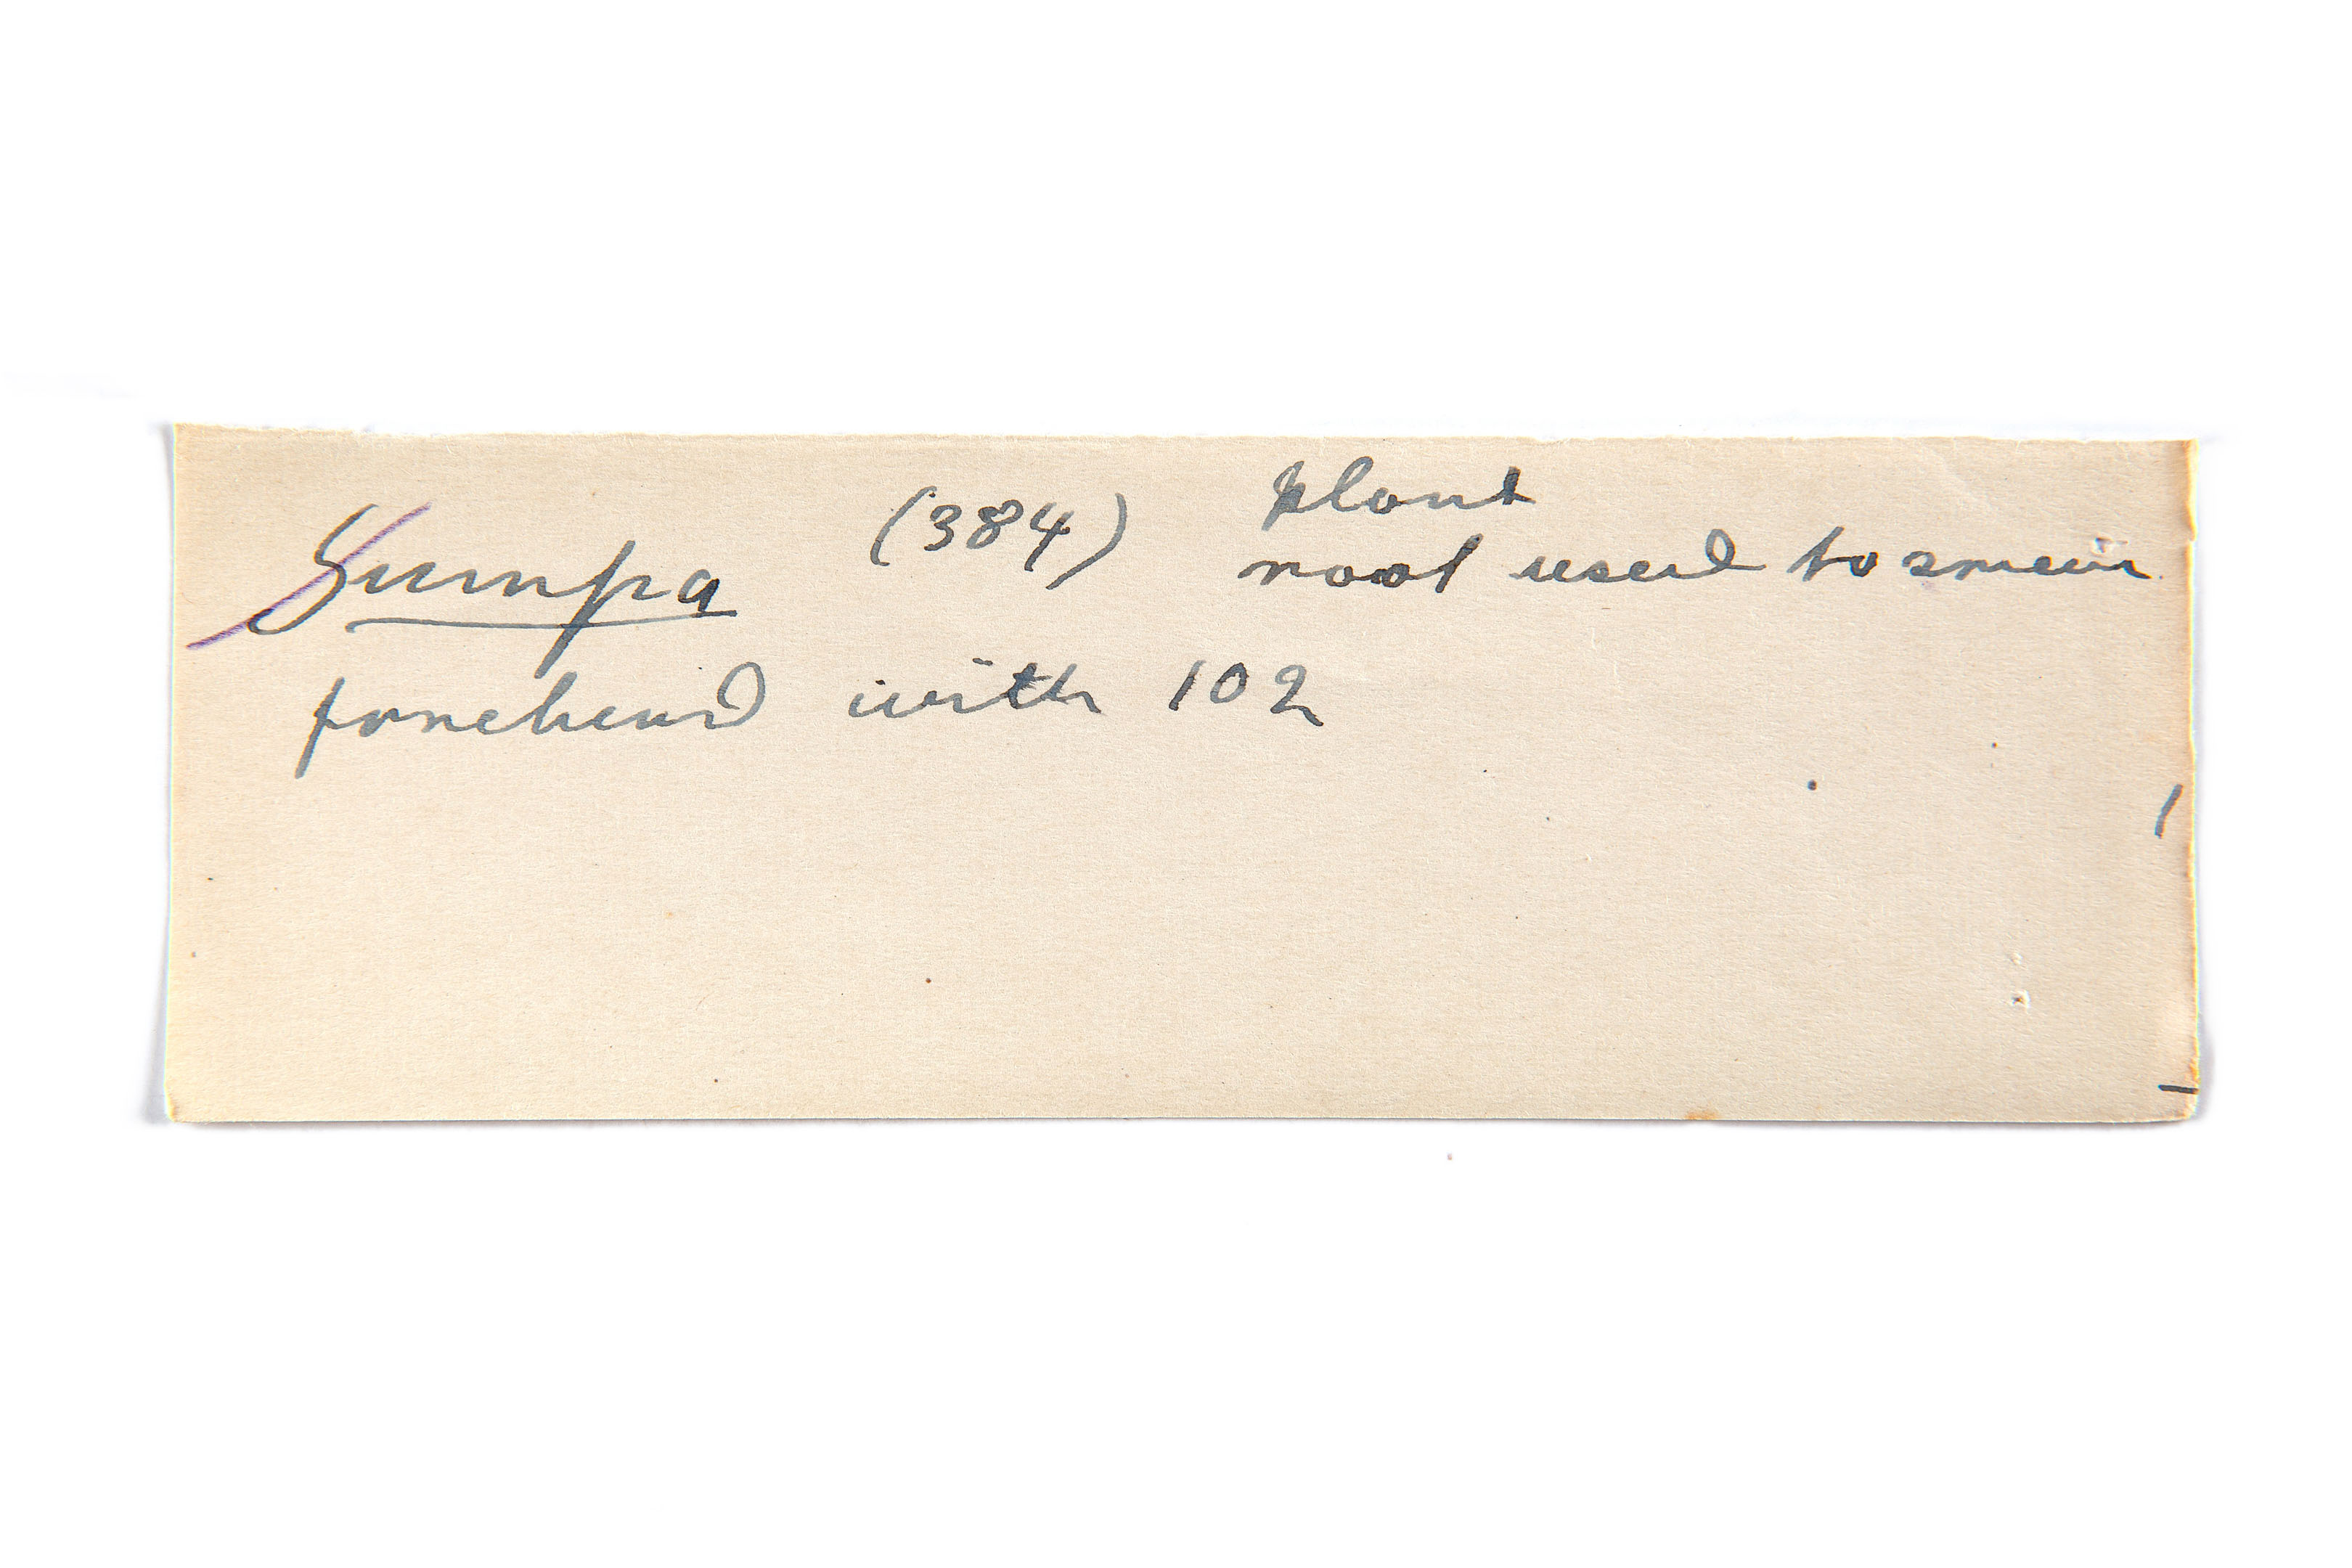 Sumpa (384) plant
root used to smear
forehead with 102